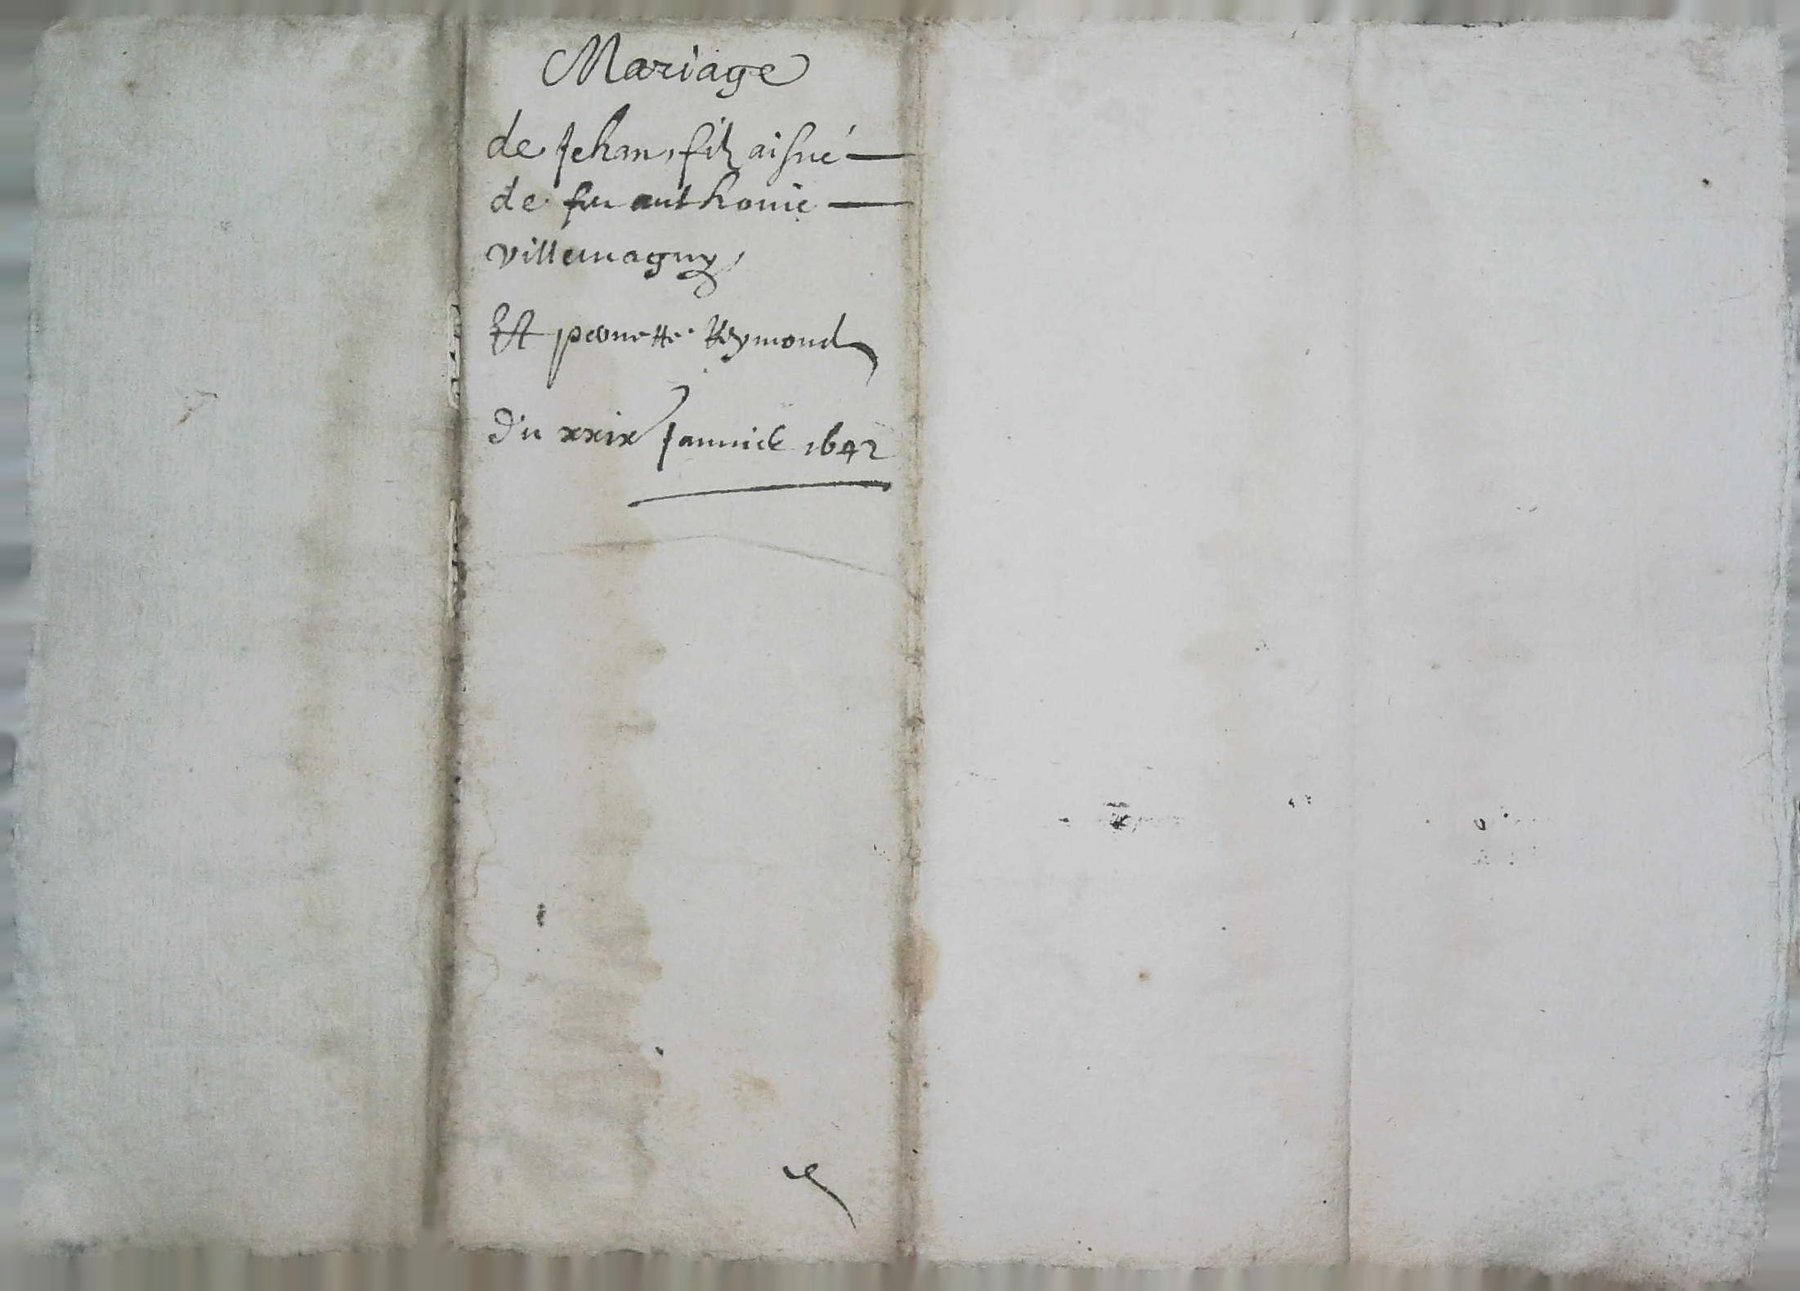 Mariage
de Jehan, filz aisné
de feu anthonie
villemagny,
Et peronette Reymond
du xxix Janvier 1642